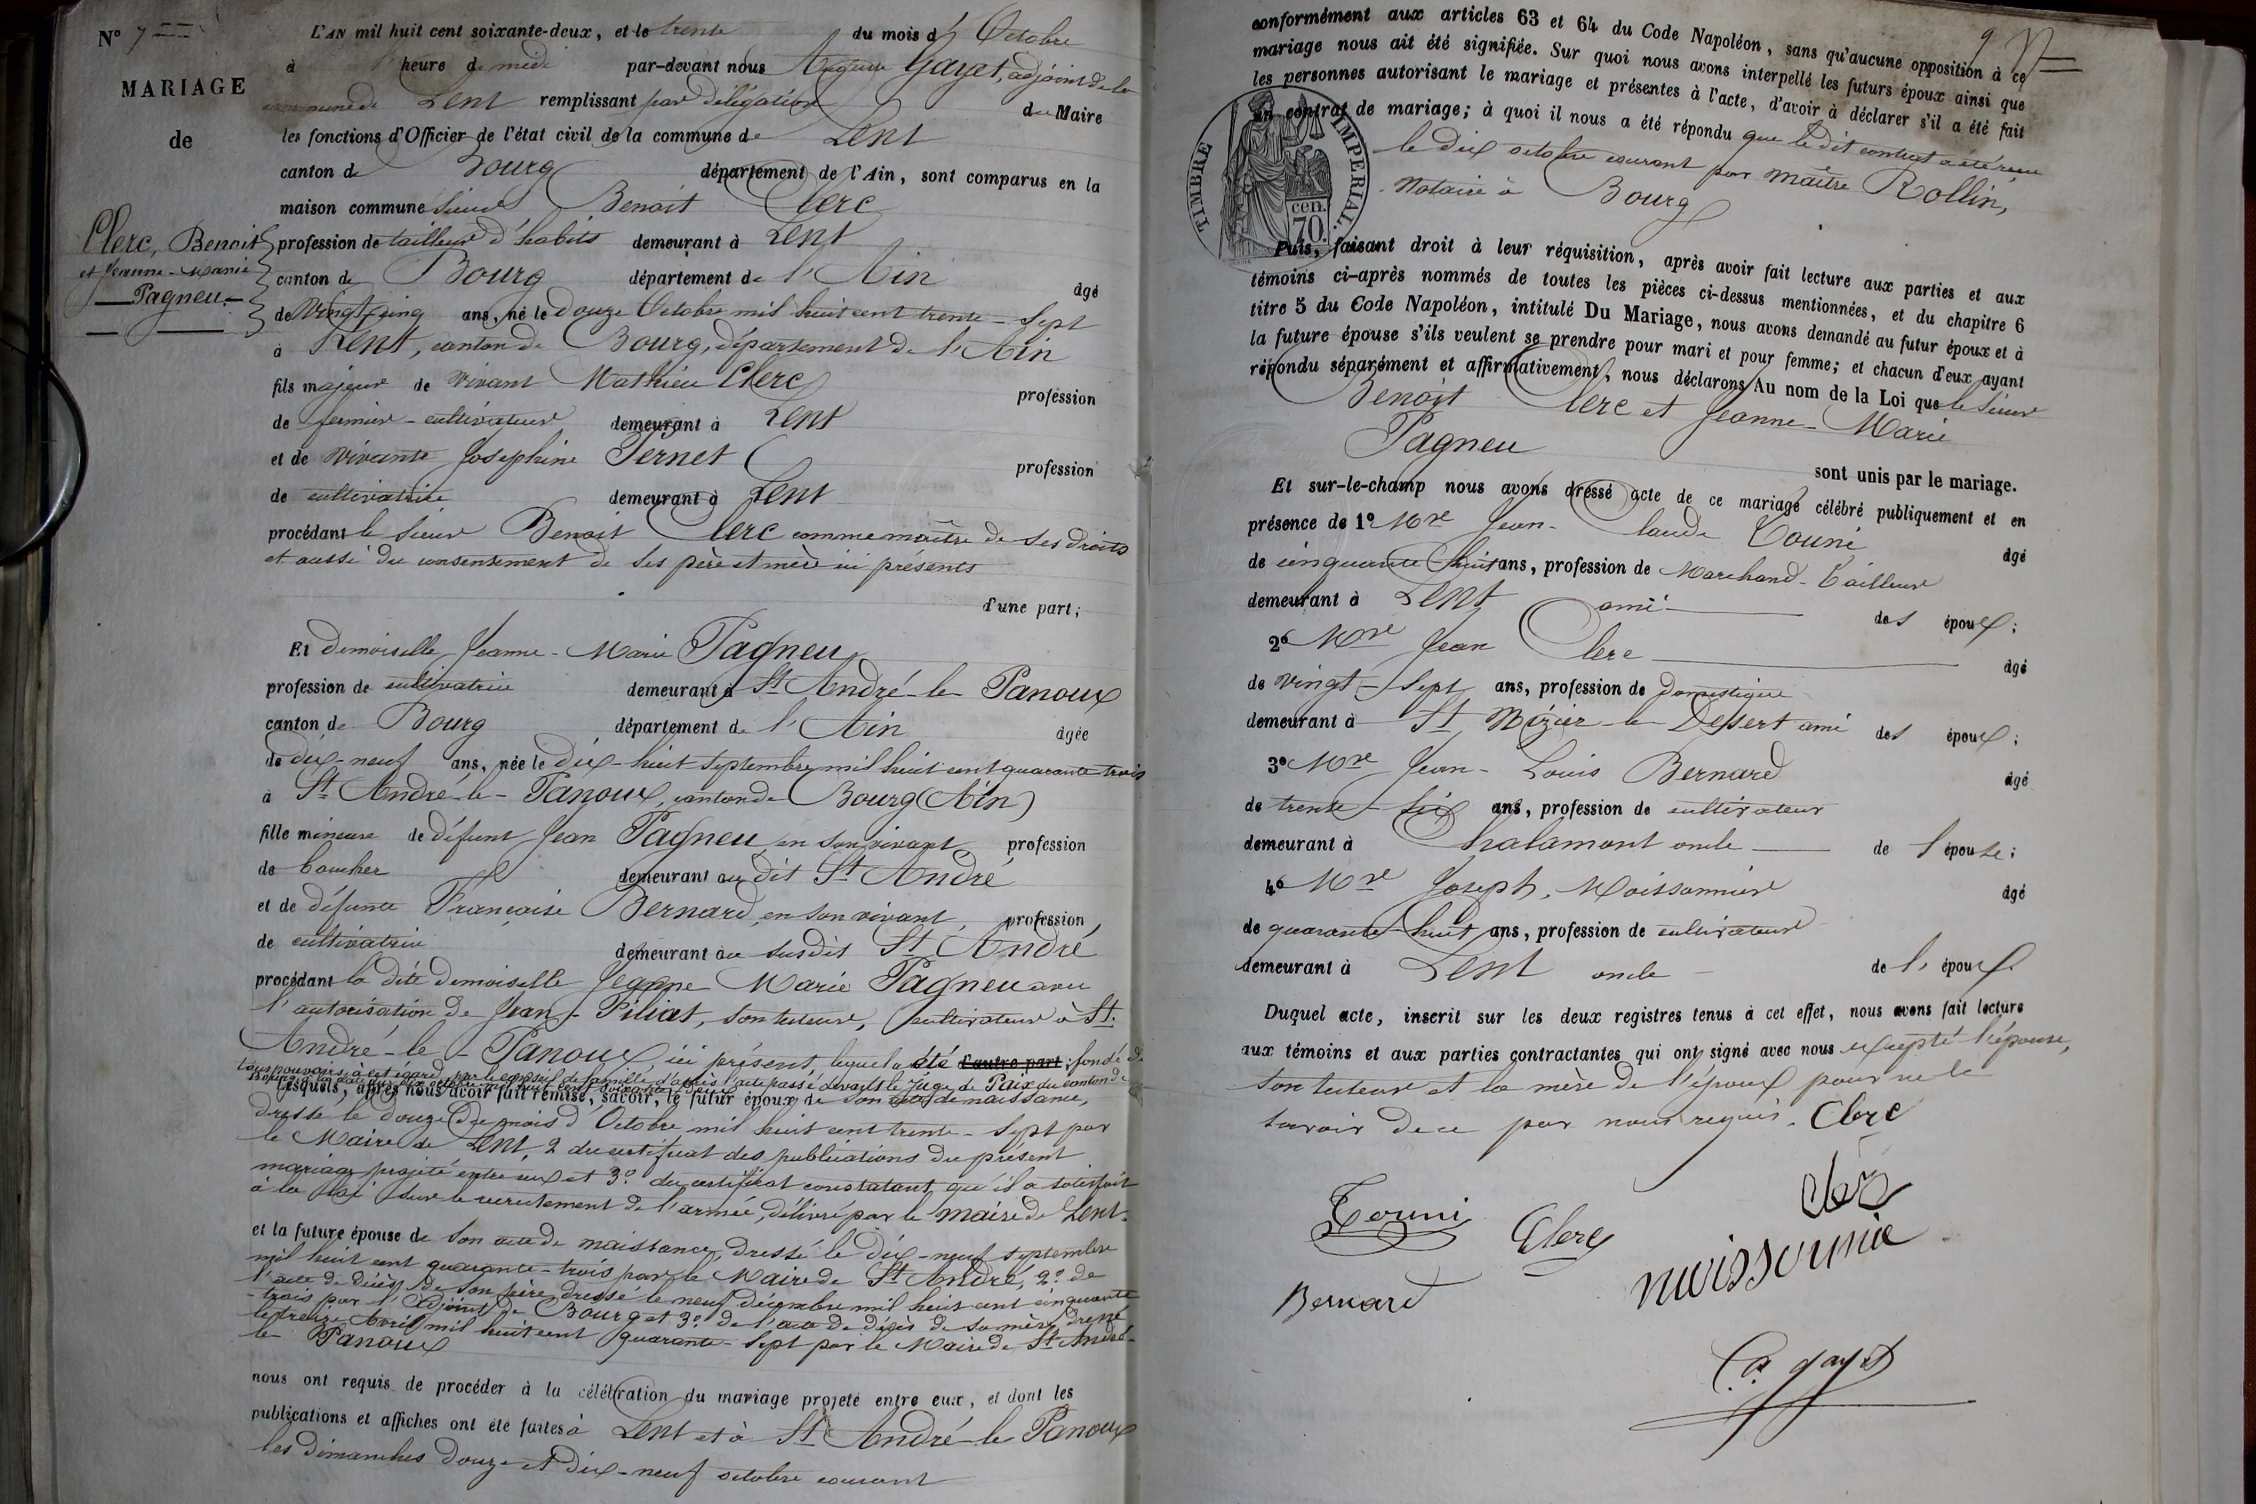 N° 7
MARIAGE
de
Clerc, Benoit
et Jeanne-Marie
Pagneu
L'AN mil huit cent soixante-deux, et le trente du mois d'Octobre
à heure de midi par-devant nous Auguste Gayet, adjoint de la
commune de Lent remplissant par délégation du Maire
les fonctions d'Officier de l'état civil de la commune de Lent
canton de Bourg département de l'Ain, sont comparus en la
maison commune sieur Benoit Clerc
profession de tailleur d'habits demeurant à Lent
canton de Bourg département de l'Ain âgé
de vingt-cinq ans, né le douze Octobre mil huit cent trente-sept
à Lent, canton de Bourg, département de l'Ain
fils majeur de vivant Mathieu Clerc profession
de fermier-cultivateur demeurant à Lent
et de vivante Joséphine Pernet profession
de cultivatrice demeurant à Lent
procédant le sieur Benoit Clerc comme maître de ses droits
et aussi du consentement de ses père et mère ici présents
d'une part;
Et demoiselle Jeanne-Marie Pagneu
profession de cultivatrice demeurant à St André-le-Panoux
canton de Bourg département de l'Ain âgée
de dix-neuf ans, née le dix-huit septembre mil huit cent quarante-trois
à St André-le-Panoux, canton de Bourg (Ain)
fille mineure de défunt Jean Pagneu en son vivant profession
de boucher demeurant au dit St André
et de défunte Françoise Bernard, en son vivant profession
de cultivatrice demeurant au susdit St André
procédant la dite demoiselle Jeanne Marie Pagneu avec
l'autorisation de Jean Piliat, son tuteur, cultivateur à St
André-le-Panoux ici présent, lequel a été d'autre part; fondé de
tous pouvoirs à cet égard par le conseil de famille, d'après l'acte passé devant le Juge de Paix du canton de
Lesquels, après nous avoir fait remise, savoir, le futur époux de son acte de naissance,
dressé le douze du mois d'Octobre mil huit cent trente-sept par
le Maire de Lent, 2° du certificat des publications du présent
mariage projeté entre eux et 3° du certificat constatant qu'il a satisfait
à la loi sur le recrutement de l'armée, délivré par le maire de Lent.
et la future épouse de son acte de naissance, dressé le dix-neuf septembre
mil huit cent quarante-trois par le Maire de St André, 2° de
l'acte de décès de son père dressé le neuf décembre mil huit cent cinquante
-trois par l'Adjoint de Bourg et 3° de l'acte de décès de sa mère dressé
le treize Avril mil huit cent quarante-sept par le Maire de St André-
le Panoux
nous ont requis de procéder à la célébration du mariage projeté entre eux, et dont les
publications et affiches ont été faites à Lent et à St André-le Panoux
les dimanches douze et dix-neuf octobre courant
9
conformément aux articles 63 et 64 du Code Napoléon, sans qu'aucune opposition à ce
mariage nous ait été signifiée. Sur quoi nous avons interpellé les futurs époux ainsi que
les personnes autorisant le mariage et présentes à l'acte, d'avoir à déclarer s'il a été fait
un contrat de mariage; à quoi il nous a été répondu que le dit contrat a été reçu
le dix octobre courant par maître Rollin,
Notaire à Bourg
TIMBRE IMPÉRIAL
70 cen.
Puis, faisant droit à leur réquisition, après avoir fait lecture aux parties et aux
témoins ci-après nommés de toutes les pièces ci-dessus mentionnées, et du chapitre 6
titre 5 du Code Napoléon, intitulé Du Mariage, nous avons demandé au futur époux et à
la future épouse s'ils veulent se prendre pour mari et pour femme; et chacun d'eux ayant
répondu séparément et affirmativement, nous déclarons Au nom de la Loi que le Sieur
Benoit Clerc et Jeanne-Marie
Pagneu
sont unis par le mariage.
Et sur-le-champ nous avons dressé acte de ce mariage célébré publiquement et en
présence de 1° Mre Jean-Claude Touni âgé
de cinquante huit ans, profession de Marchand-Tailleur
demeurant à Lent ami des époux;
2° Mre Jean Clerc âgé
de vingt-sept ans, profession de Domestique
demeurant à St Nizier le Désert ami des époux;
3° Mre Jean-Louis Bernard âgé
de trente-six ans, profession de cultivateur
demeurant à Chalamont oncle de l'épouse;
4° Mre Joseph Moissonnier âgé
de quarante-huit ans, profession de cultivateur
demeurant à Lent oncle de l'époux.
Duquel acte, inscrit sur les deux registres tenus à cet effet, nous avons fait lecture
aux témoins et aux parties contractantes qui ont signé avec nous excepté l'épouse,
son tuteur et la mère de l'époux pour ne le
savoir de ce par nous requis. Clerc
Touni Clerc
Bernard
moissounie
gayet